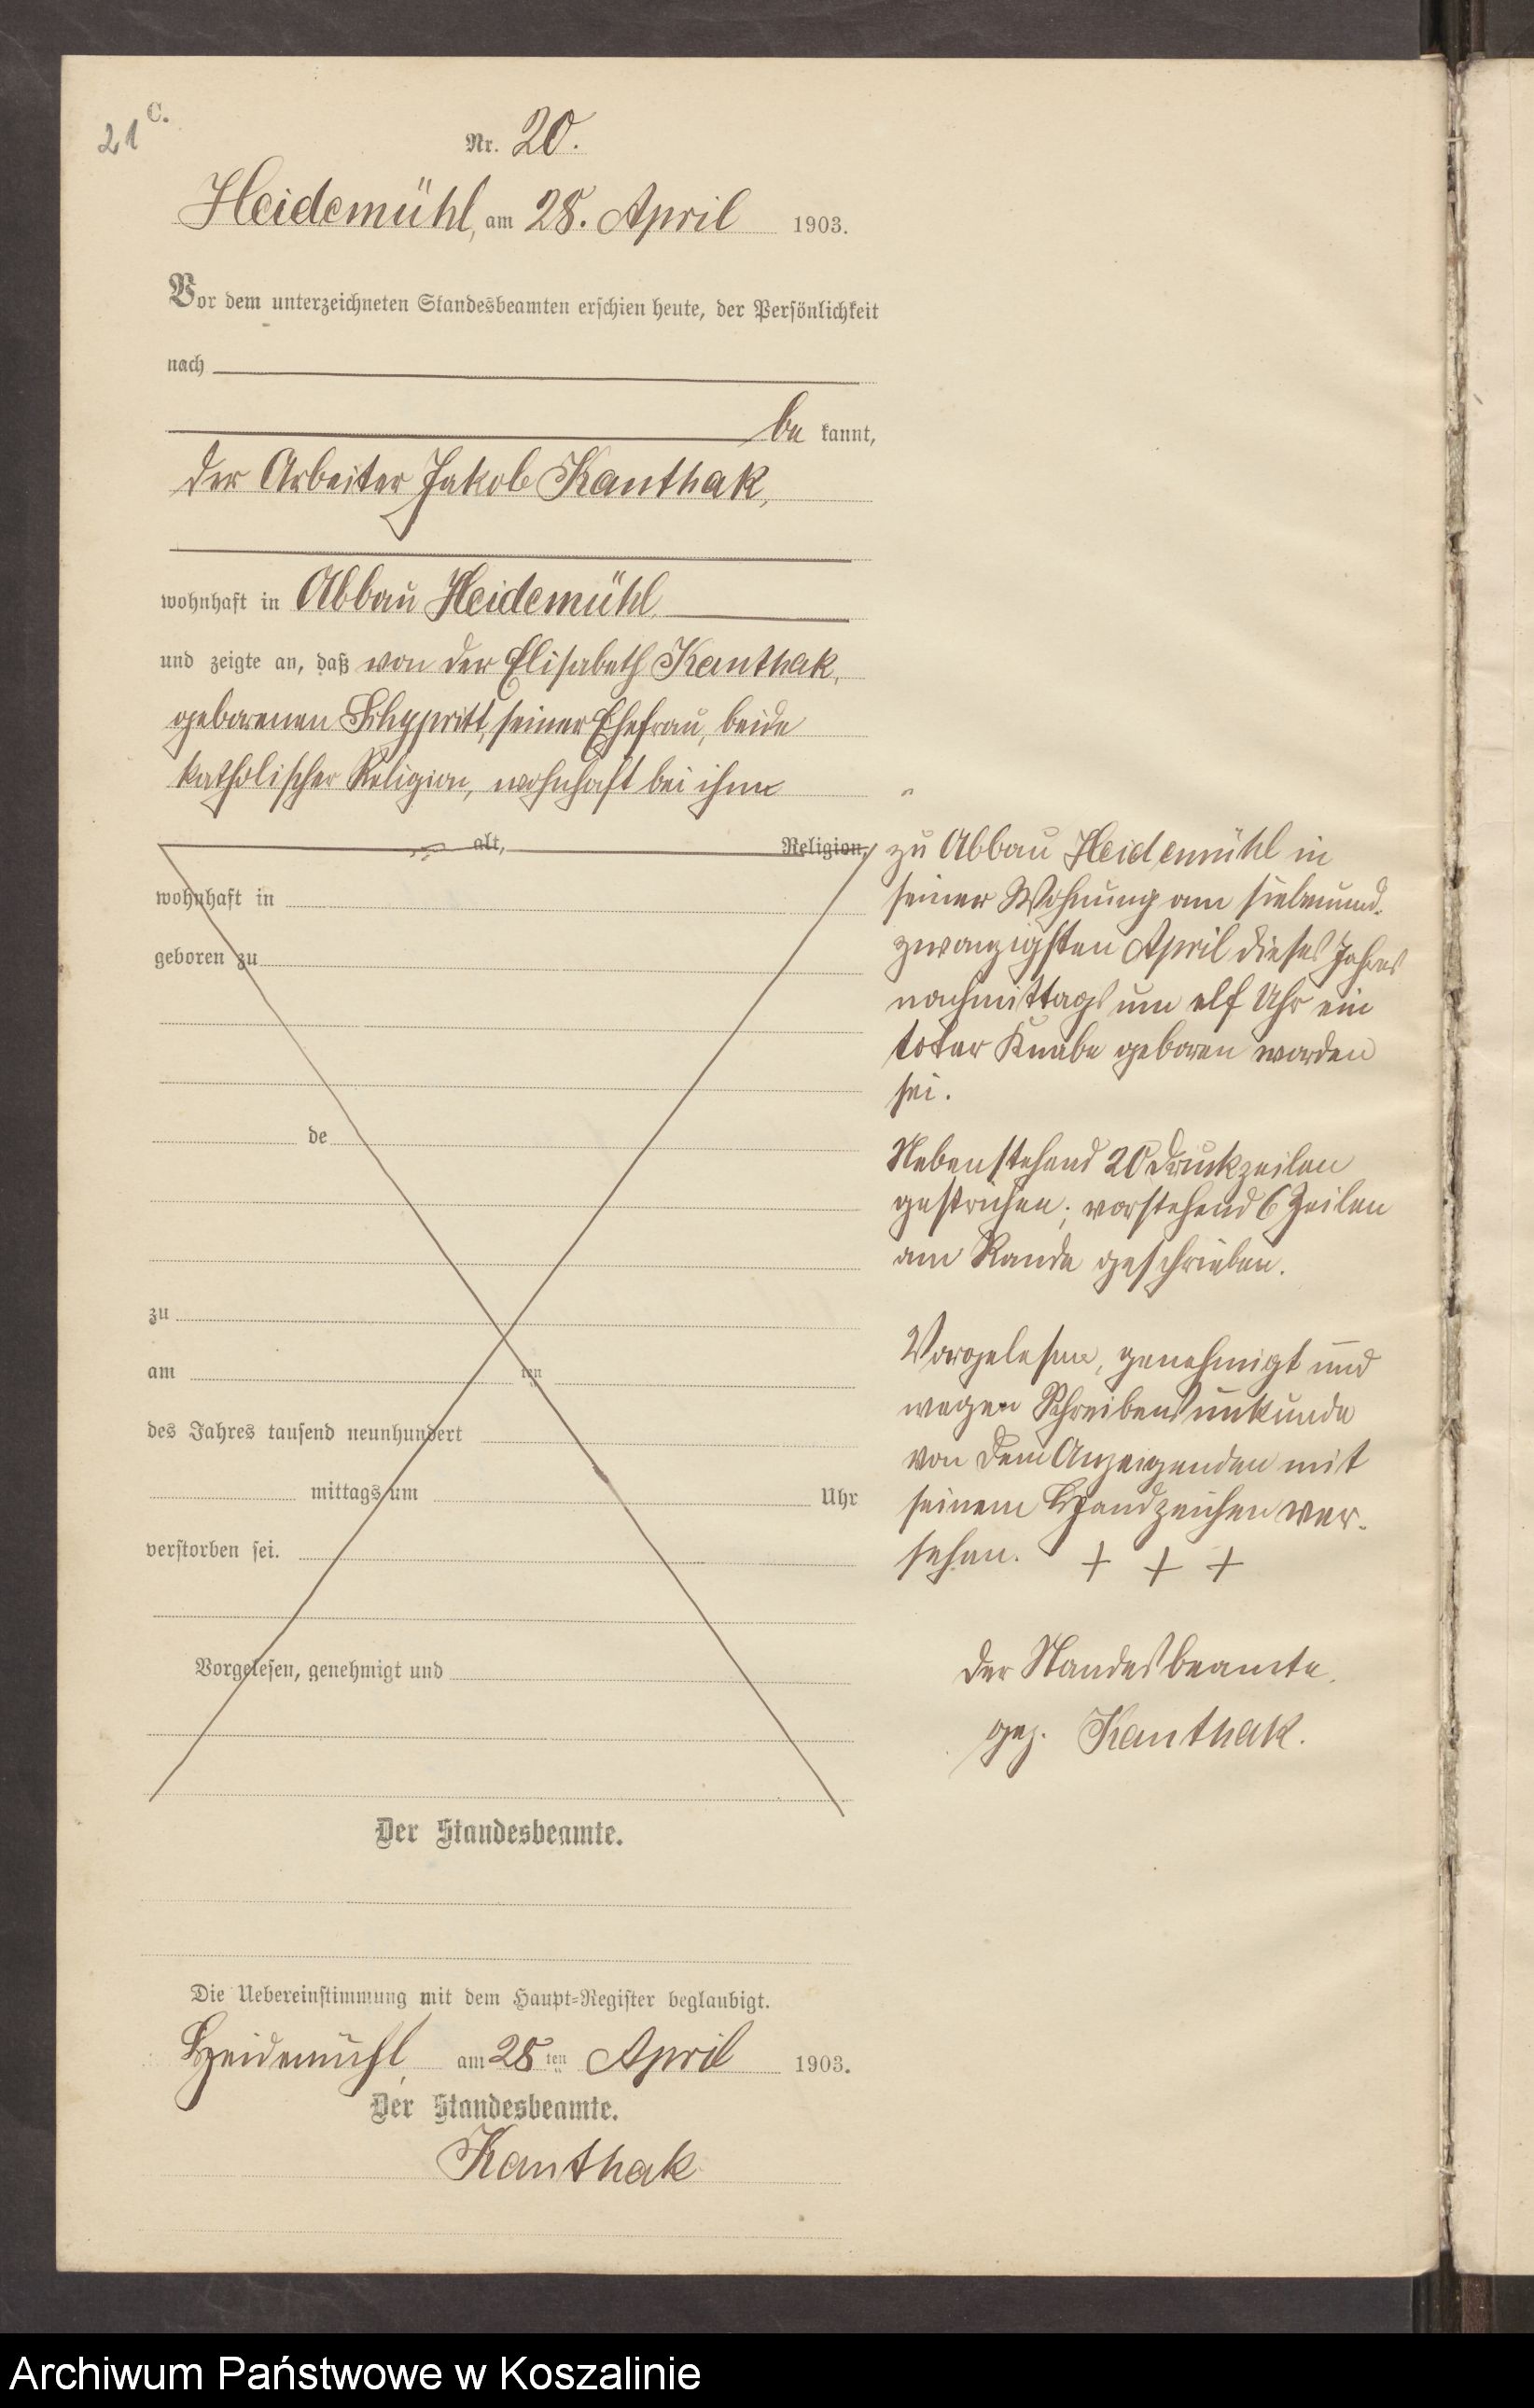 21
C.
Nr. 20.
Heidemühl, am 28. April 1903.
Vor dem unterzeichneten Standesbeamten erschien heute, der Persönlichkeit
nach
be kannt,
der Arbeiter Jakob Kanthak,
wohnhaft in Abbau Heidemühl,
und zeigte an, daß von der Elisabeth Kanthak,
geborenen seiner Ehefrau, beide
katholischer Religion, wohnhaft bei ihm
alt, Religion,
wohnhaft in
geboren zu
de
zu
am ten
des Jahres tausend neunhundert
mittags um Uhr
verstorben sei.
Vorgelesen, genehmigt und
Der Standesbeamte.
zu Abbau Heidemühl in
seiner Wohnung am siebenund-
zwanzigsten April dieses Jahres
nachmittags um elf Uhr ein
toter Knabe geboren worden
sei.
Nebenstehend 20 Druckzeilen
gestrichen; vorstehend 6 Zeilen
am Rande geschrieben.
Vorgelesen, genehmigt und
wegen Schreibensunkunde
von dem Anzeigenden mit
seinem Handzeichen ver-
sehen. + + +
Der Standesbeamte.
gez. Kanthak.
Die Uebereinstimmung mit dem Haupt-Register beglaubigt.
Heidemühl, am 28 ten April 1903.
Der Standesbeamte.
Kanthak
Archiwum Państwowe w Koszalinie